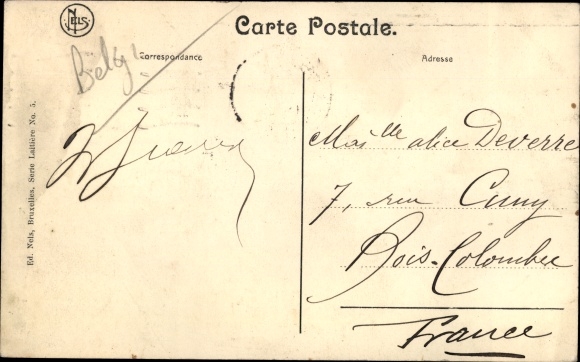 NELS
Carte Postale.
Correspondance
Adresse
Belg
Melle alice Deverre
7, rue Cuny
Bois-Colombes
France
Ed. Nels, Bruxelles, Serie Laitière No. 5.